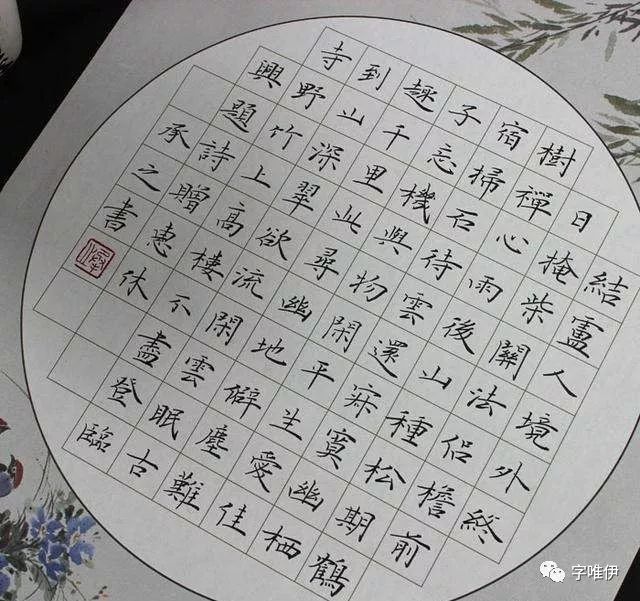 結廬人境外終
日掩柴關法侶檐前
樹禪心雨後山種松期鶴
宿掃石待雲還寂寞幽栖
子忘機與物閑平生愛佳
趣千里此尋幽地僻塵難
到山深翠欲流閑雲眠古
寺野竹上高樓不盡登臨
興題詩贈惠休
承之書
字唯伊